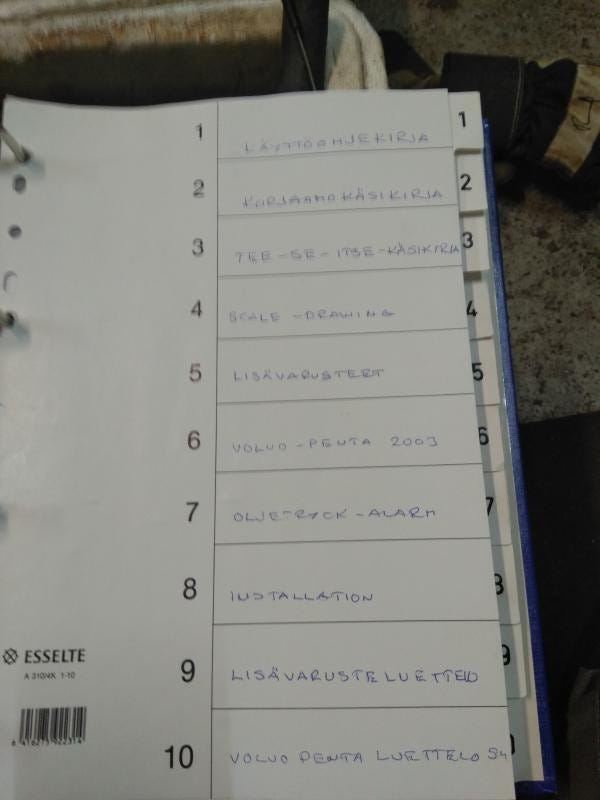 1 KÄYTTÖOHJEKIRJA 1
2 KORJAAMOKÄSIKIRJA 2
3 TEE-SE-ITSE-KÄSIKIRJA 3
4 SCALE-DRAWING 4
5 LISÄVARUSTEET 5
6 VOLVO-PENTA 2003 6
7 OLJETRYCK-ALARM 7
8 INSTALLATION 8
ESSELTE
A 310/4K 1-10
9 LISÄVARUSTELUETTELO 9
6 416275 922314
10 VOLVO PENTA LUETTELO